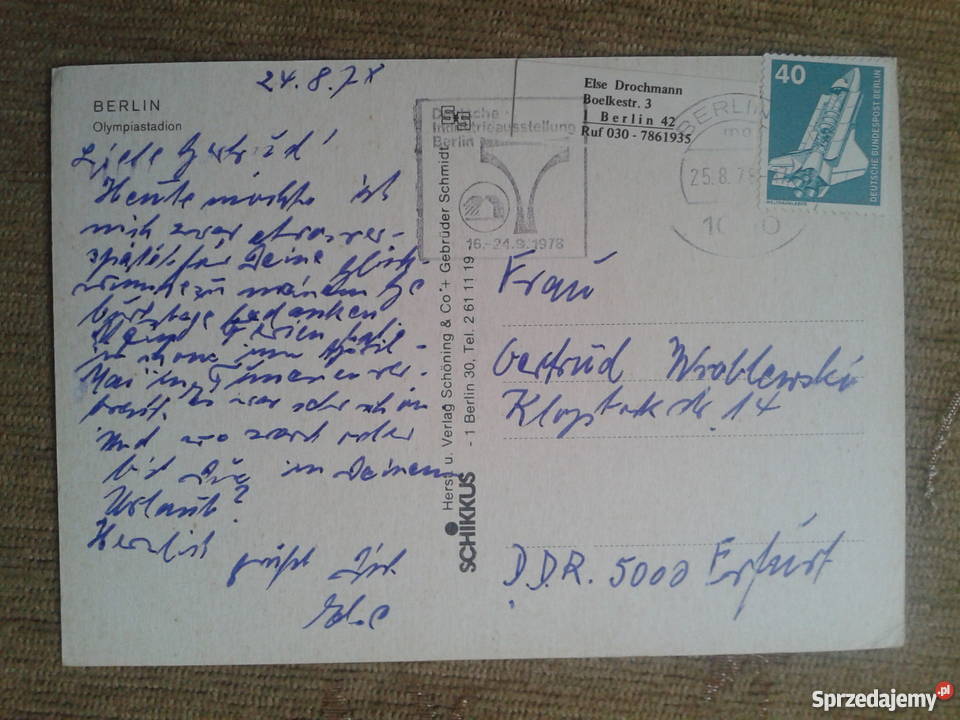 24.8.78
BERLIN
Olympiastadion
Liebe Gertrud!
Heute möchte ich
mich zwar etwas ver-
spätet für Deine Glück-
wünsche zu meinem Ge
burtstage bedanken
Meine Ferien habe
ich schon im April -
Mai in Tunesien ver-
bracht. Es war sehr schön
Und wo warst oder
bist Du in Deinem
Urlaub?
Herzlich
grüßt Dich
Else
Herst. u. Verlag Schöning & Co + Gebrüder Schmidt
- 1 Berlin 30, Tel. 2 61 11 19
SCHIKKUS
Deutsche
Industrieausstellung
Berlin
16.-24.9.1978
Else Drochmann
Boelkestr. 3
1 Berlin 42
Ruf 030 - 7861935
BERLIN
25.8.78
40
DEUTSCHE BUNDESPOST BERLIN
Frau
Gertrud Wroblewski
Klopstockstr. 14
D.D.R. 5000 Erfurt
Sprzedajemy.pl